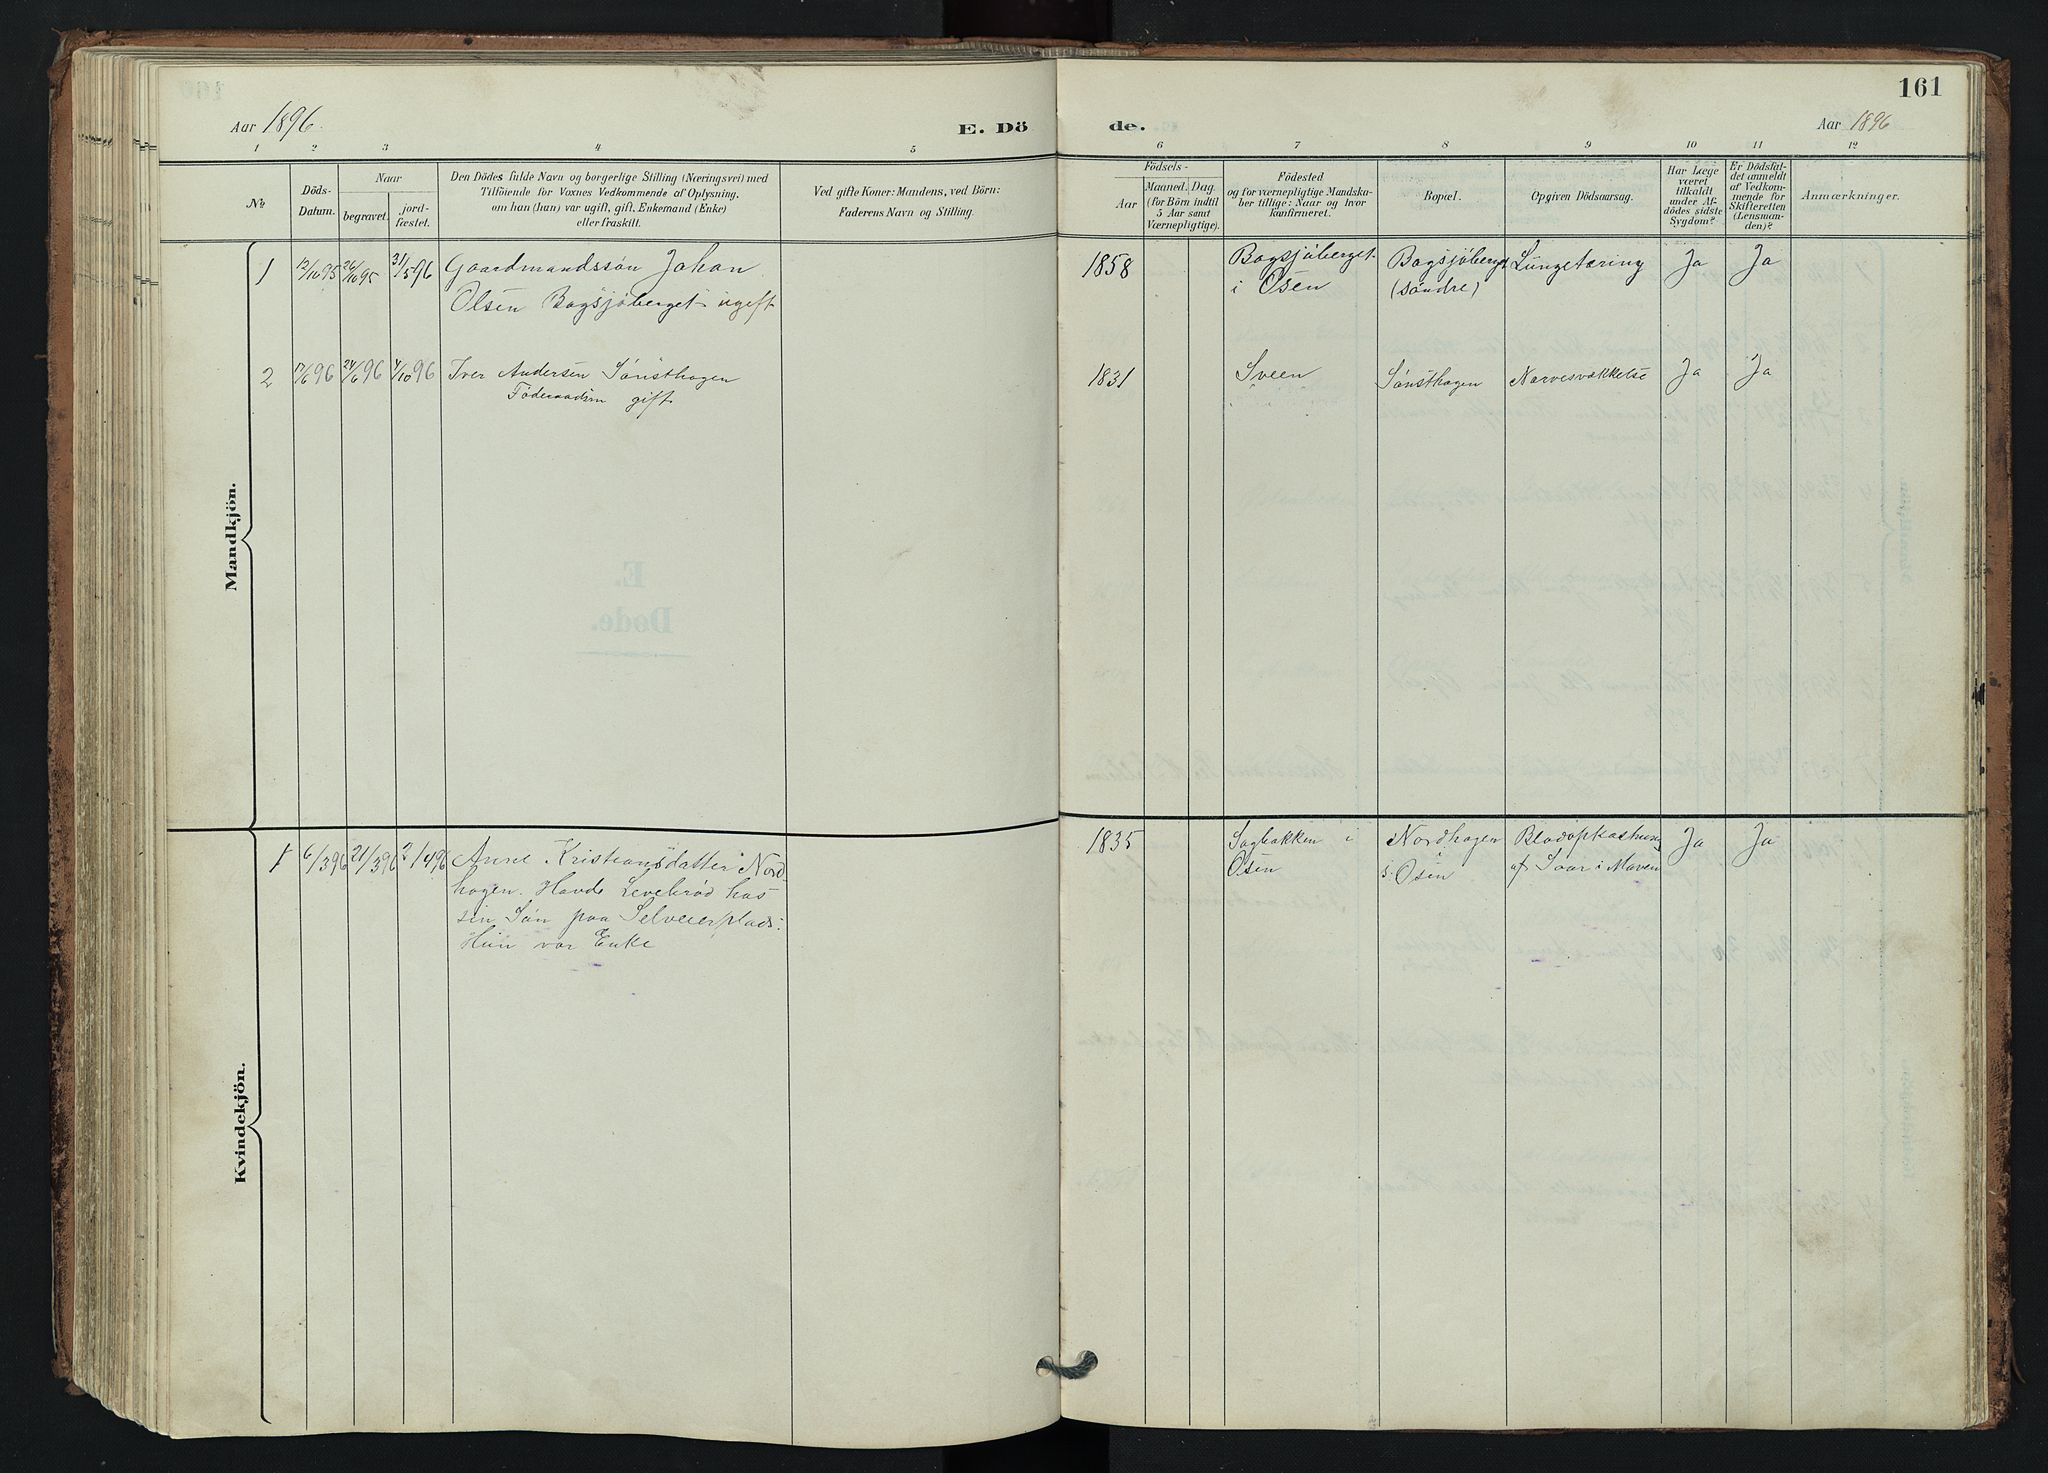 161
Aar 1896.
E. Dö
de.
Aar 1896
1 2 3 4 5
6 7 8 9 10 11 12
№
Döds-
Datum.
Naar
begravet.
jord-
fæstet.
Den Dödes fulde Navn og borgerlige Stilling (Næringsvei) med
Tilföiende for Voxnes Vedkommende af Oplysning,
om han (hun) var ugift, gift, Enkemand (Enke)
eller fraskilt.
Ved gifte Koner: Mandens, ved Börn:
Faderens Navn og Stilling.
Födsels-
Aar
Maaned. Dag.
(for Börn indtil
5 Aar samt
Værnepligtige).
Födested
og for værnepligtige Mandska-
ber tillige: Naar og hvor
konfirmeret.
Bopæl.
Opgiven Dödsaarsag.
Har Læge
været
tilkaldt
under Af-
dödes sidste
Sygdom?
Er Dödsfal-
det anmeldt
af Vedkom-
mende for
Skifteretten
(Lensman-
den)?
Anmærkninger.
Mandkjön.
1 12/10 95 26/10 95 31/5 96 Gaardmandssön Johan
Olsen Bagsjöberget ugift
1858 Bagsjöberget
i Osen
Bagsjöberget
(söndre)
Lungetæring Ja Ja
2 17/6 96 24/6 96 4/10 96 Iver Andersen Sönsthagen
gift
1831 Sveen Sönsthagen Nervesvækkelse Ja Ja
Kvindekjön.
1 6/3 96 21/3 96 2/4 96 Anne Kristiansdatter Nord
hagen. Havde Levebröd hos
sin Sön paa Selveierplads.
Hun var Enke
1835 Sagbakken i
Osen
Nordhagen
i Osen
Blodopkastning
af Saar i Maven
Ja Ja
E.
Döde.